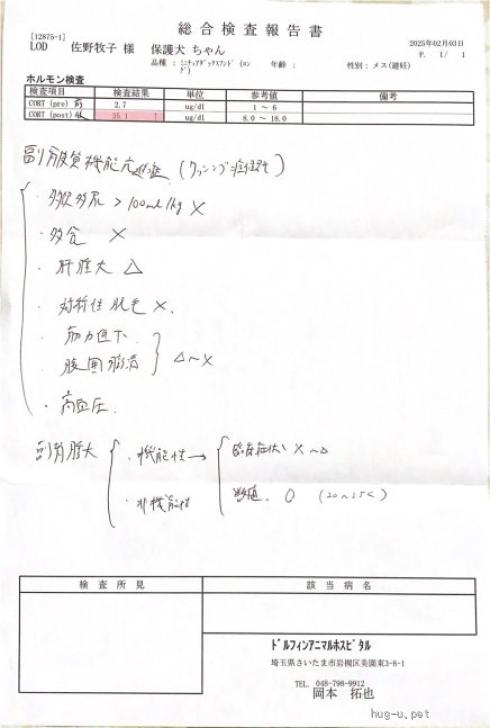 総合検査報告書
[12875-1]
LOD 佐野牧子 様 保護犬 ちゃん
2025年02月03日
P. 1/ 1
品種 : ミニチュアダックスフンド (ロング) 年齢 : 性別 : メス(避妊)
ホルモン検査
検査項目 検査結果 単位 参考値 備考
CORT (pre) 前 2.7 ug/dl 1 ~ 6
CORT (post) 後 35.1 ↑ ug/dl 8.0 ~ 18.0
副腎皮質機能亢進症 (クッシング症候群)
・多飲多尿 > 100ml/kg ×
・多食 ×
・肝腫大 △
・対称性脱毛 ×.
・筋力低下
腹囲膨満 △~×
・高血圧.
副腎腫大 ・機能性 → 臨床症状 ×~△
・非機能性 数値. ○ (20~25<)
検査所見 該当病名
ドルフィンアニマルホスピタル
埼玉県さいたま市岩槻区美園東3-8-1
TEL. 048-798-9912
岡本 拓也
hug-u.pet